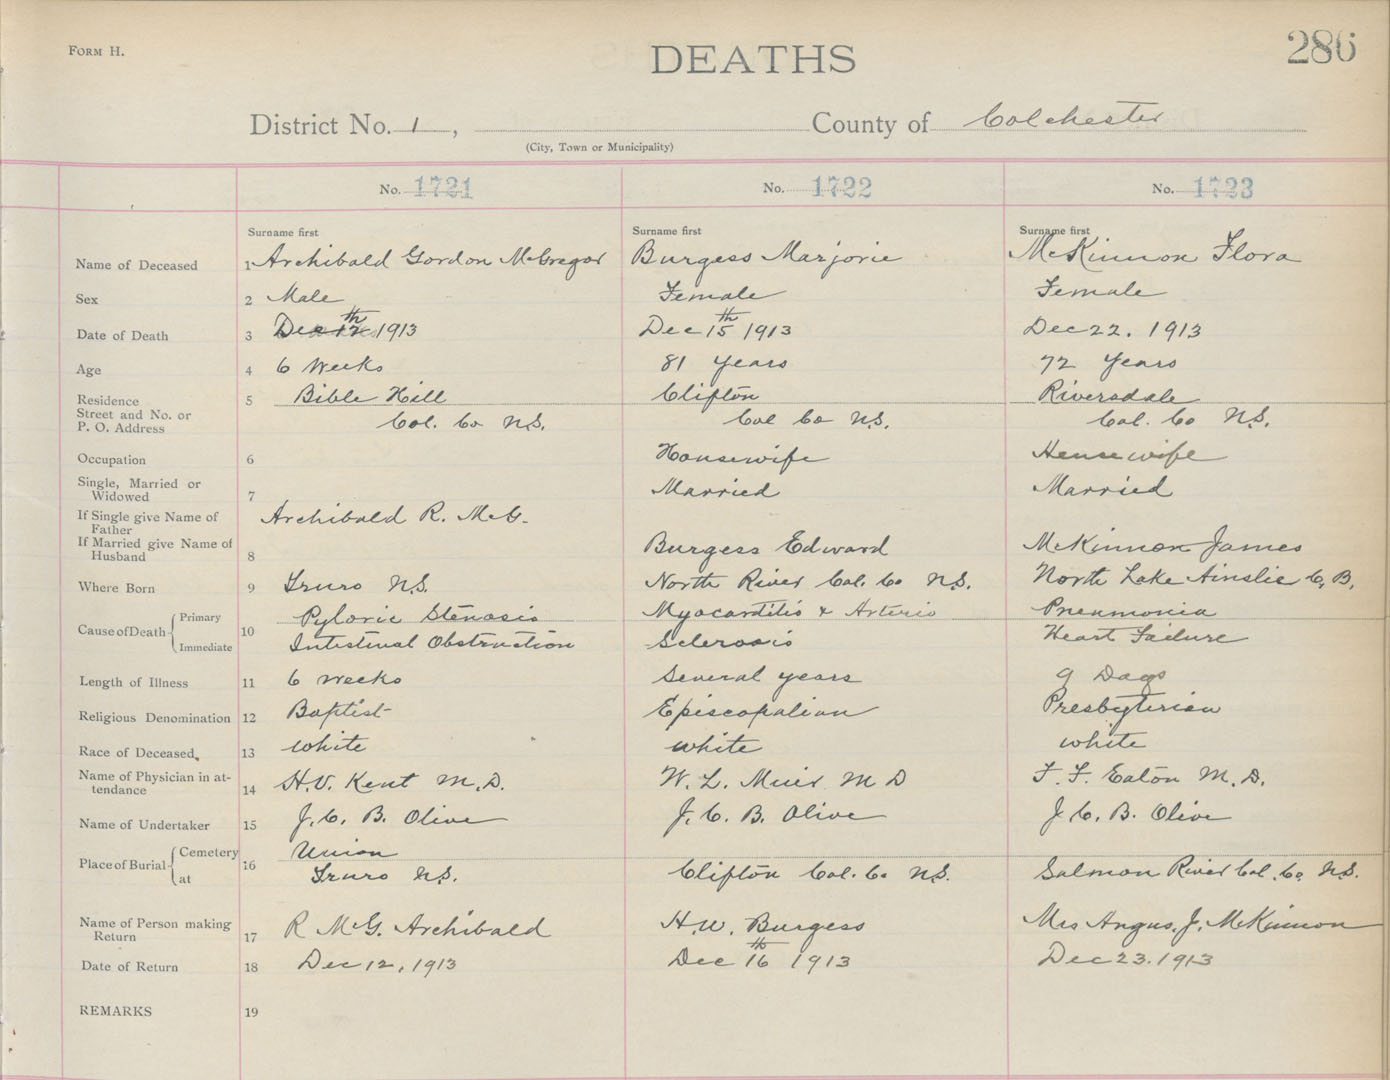 FORM H.
DEATHS
286
District No. 1, County of Colchester
(City, Town or Municipality)
No. 1721 No. 1722 No. 1723
Surname first Surname first Surname first
Name of Deceased 1 Archibald Gordon McGregor Burgess Marjorie McKinnon Flora
Sex 2 Male Female Female
Date of Death 3 Dec 12th 1913 Dec 15th 1913 Dec 22. 1913
Age 4 6 Weeks 81 Years 72 Years
Residence 5 Bible Hill Clifton Riversdale
Street and No. or
P. O. Address Col. Co N.S. Col Co N.S. Col. Co N.S.
Occupation 6 Housewife Housewife
Single, Married or
Widowed 7 Married Married
If Single give Name of
Father Archibald R. McG.
If Married give Name of
Husband 8 Burgess Edward McKinnon James
Where Born 9 Truro N.S. North River Col. Co N.S. North Lake Ainslie C. B.
Cause of Death Primary 10 Pyloric Stenosis Myocarditis & Arterio Pneumonia
Immediate Intestinal Obstruction Sclerosis Heart Failure
Length of Illness 11 6 weeks Several years 9 Days
Religious Denomination 12 Baptist Episcopalian Presbyterian
Race of Deceased 13 White White White
Name of Physician in at-
tendance 14 H.V. Kent M.D. W. L. Muir M D F. F. Eaton M.D.
Name of Undertaker 15 J. C. B. Olive J. C. B. Olive J. C. B. Olive
Place of Burial Cemetery 16 Union
at Truro N.S. Clifton Col. Co N.S. Salmon River Col. Co. N.S.
Name of Person making
Return 17 R McG. Archibald H.W. Burgess Mrs Angus. J. McKinnon
Date of Return 18 Dec 12, 1913 Dec 16th 1913 Dec 23. 1913
REMARKS 19